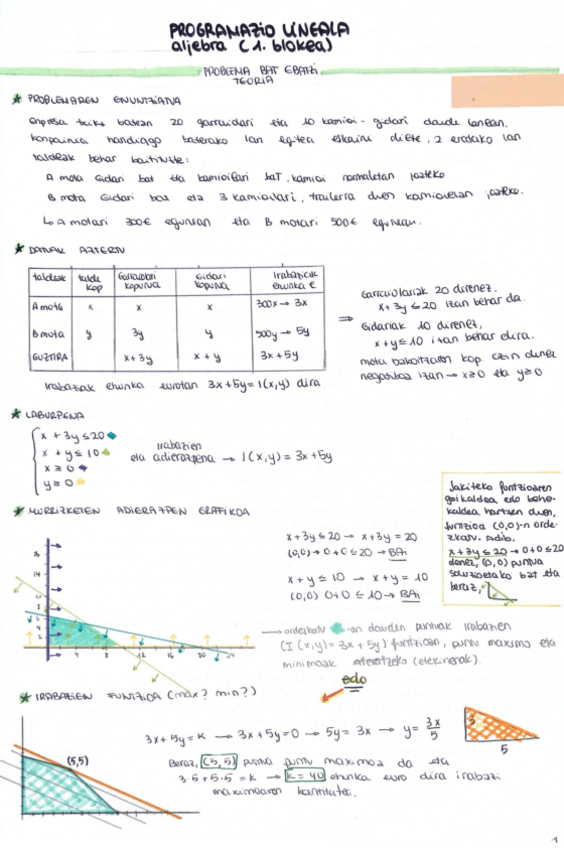 PROGRAMAZIO LINEALA
aljebra (1. blokea)
PROBLEMA BAT EBATZI
TEORIA
PROBLEMAREN ENUNTZIATUA
enpresa txiki batean 20 garraiolari eta 10 kamioi-gidari daude lanean.
konpainia handiago baterako lan egitea eskaini diete, 2 eratako lan
taldeak behar baitituzte:
A mota Gidari bat eta kamioilari bat, kamioi normaletan joateko
B mota Gidari bat eta 3 kamioilari, trailerra duen kamioietan joateko.
↳ A motari 300€ egunean eta B motari 500€ egunean.
DATUAK AZTERTU
taldeak talde kop Garraiolari kopurua Gidari kopurua Irabaziak ehunka €
A mota x x x 300x → 3x
B mota y 3y y 500y → 5y
GUZTIRA x + 3y x + y 3x + 5y
⇒ Garraiolariak 20 direnez,
x + 3y ≤ 20 izan behar da.
Gidariak 10 direnez,
x + y ≤ 10 izan behar dira.
mota bakoitzaren kop. ezin denez
negatiboa izan → x≥0 eta y≥0
Irabaziak ehunka eurotan 3x + 5y = I(x,y) dira
LABURPENA
x + 3y ≤ 20
x + y ≤ 10
x ≥ 0
y ≥ 0
irabazien
eta adierazpena → I(x,y) = 3x + 5y
Jakiteko funtzioaren
goikaldea edo behe-
kaldea hartzen duen,
funtzioa (0,0)-n orde-
zkatu. Adib.
x + 3y ≤ 20 → 0+0 ≤ 20
denez, (0,0) puntua
soluzioetako bat eta
beraz,
MURRIZKETEN ADIERAZPEN GRAFIKOA
x + 3y ≤ 20 → x + 3y = 20
(0,0) → 0 + 0 ≤ 20 → BAI
x + y ≤ 10 → x + y = 10
(0,0) 0+0 ≤ 10 → BAI
16
14
8
6
4
2
4 8 12 16 20 24
→ ordezkatu -an dauden puntuak irabazien
(I(x,y) = 3x + 5y) funtzioan, puntu maximo eta
minimoak ateratzeko (etekinerak).
edo
IRABAZIEN FUNTZIOA (max? min?)
3x + 5y = K → 3x + 5y = 0 → 5y = 3x → y = 3x/5
3
5
(5,5)
Beraz, (5,5) puntua puntu maximoa da eta
3·5 + 5·5 = K → K = 40 ehunka euro dira irabazi
maximoaren kantitatea.
1